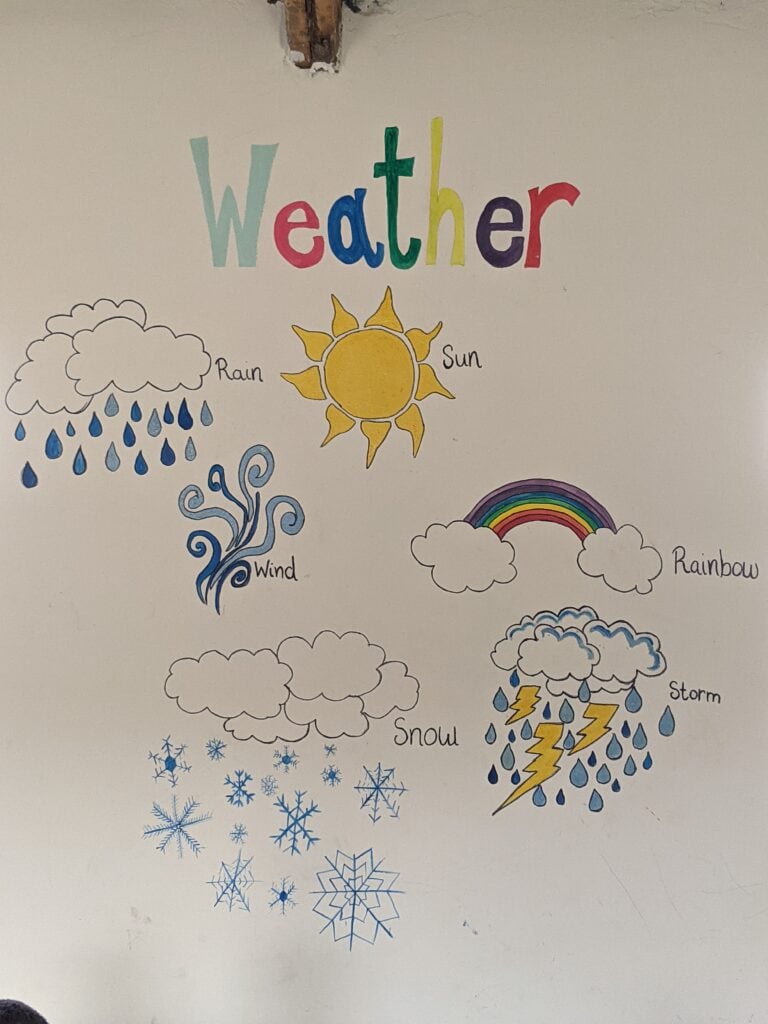 Weather
Rain
Sun
Wind
Rainbow
Storm
Snow